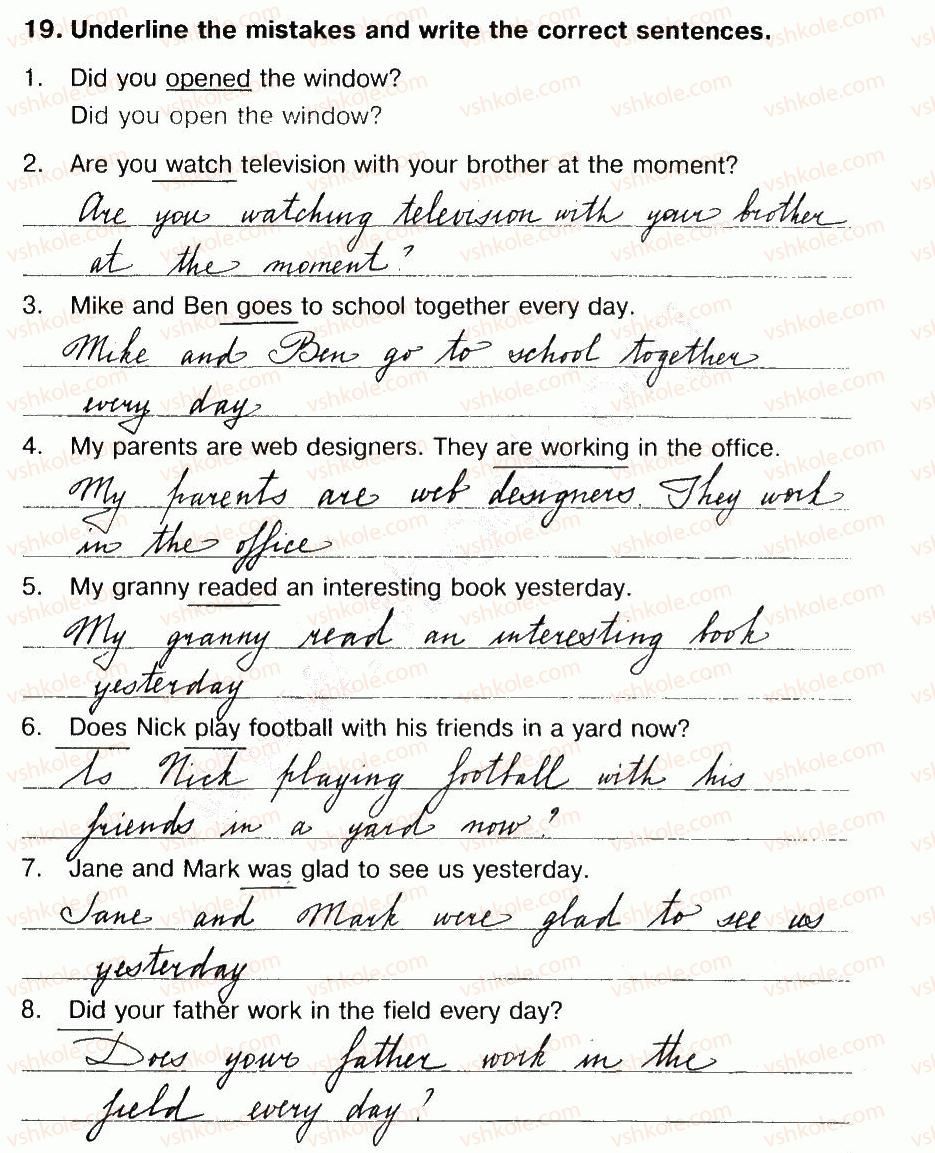 19. Underline the mistakes and write the correct sentences.
1. Did you opened the window?
Did you open the window?
2. Are you watch television with your brother at the moment?
Are you watching television with your brother
at the moment?
3. Mike and Ben goes to school together every day.
Mike and Ben go to school together
every day
4. My parents are web designers. They are working in the office.
My parents are web designers. They work
in the office
5. My granny readed an interesting book yesterday.
My granny read an interesting book
yesterday
6. Does Nick play football with his friends in a yard now?
Is Nick playing football with his
friends in a yard now?
7. Jane and Mark was glad to see us yesterday.
Jane and Mark were glad to see us
yesterday
8. Did your father work in the field every day?
Does your father work in the
field every day?
vshkole.com